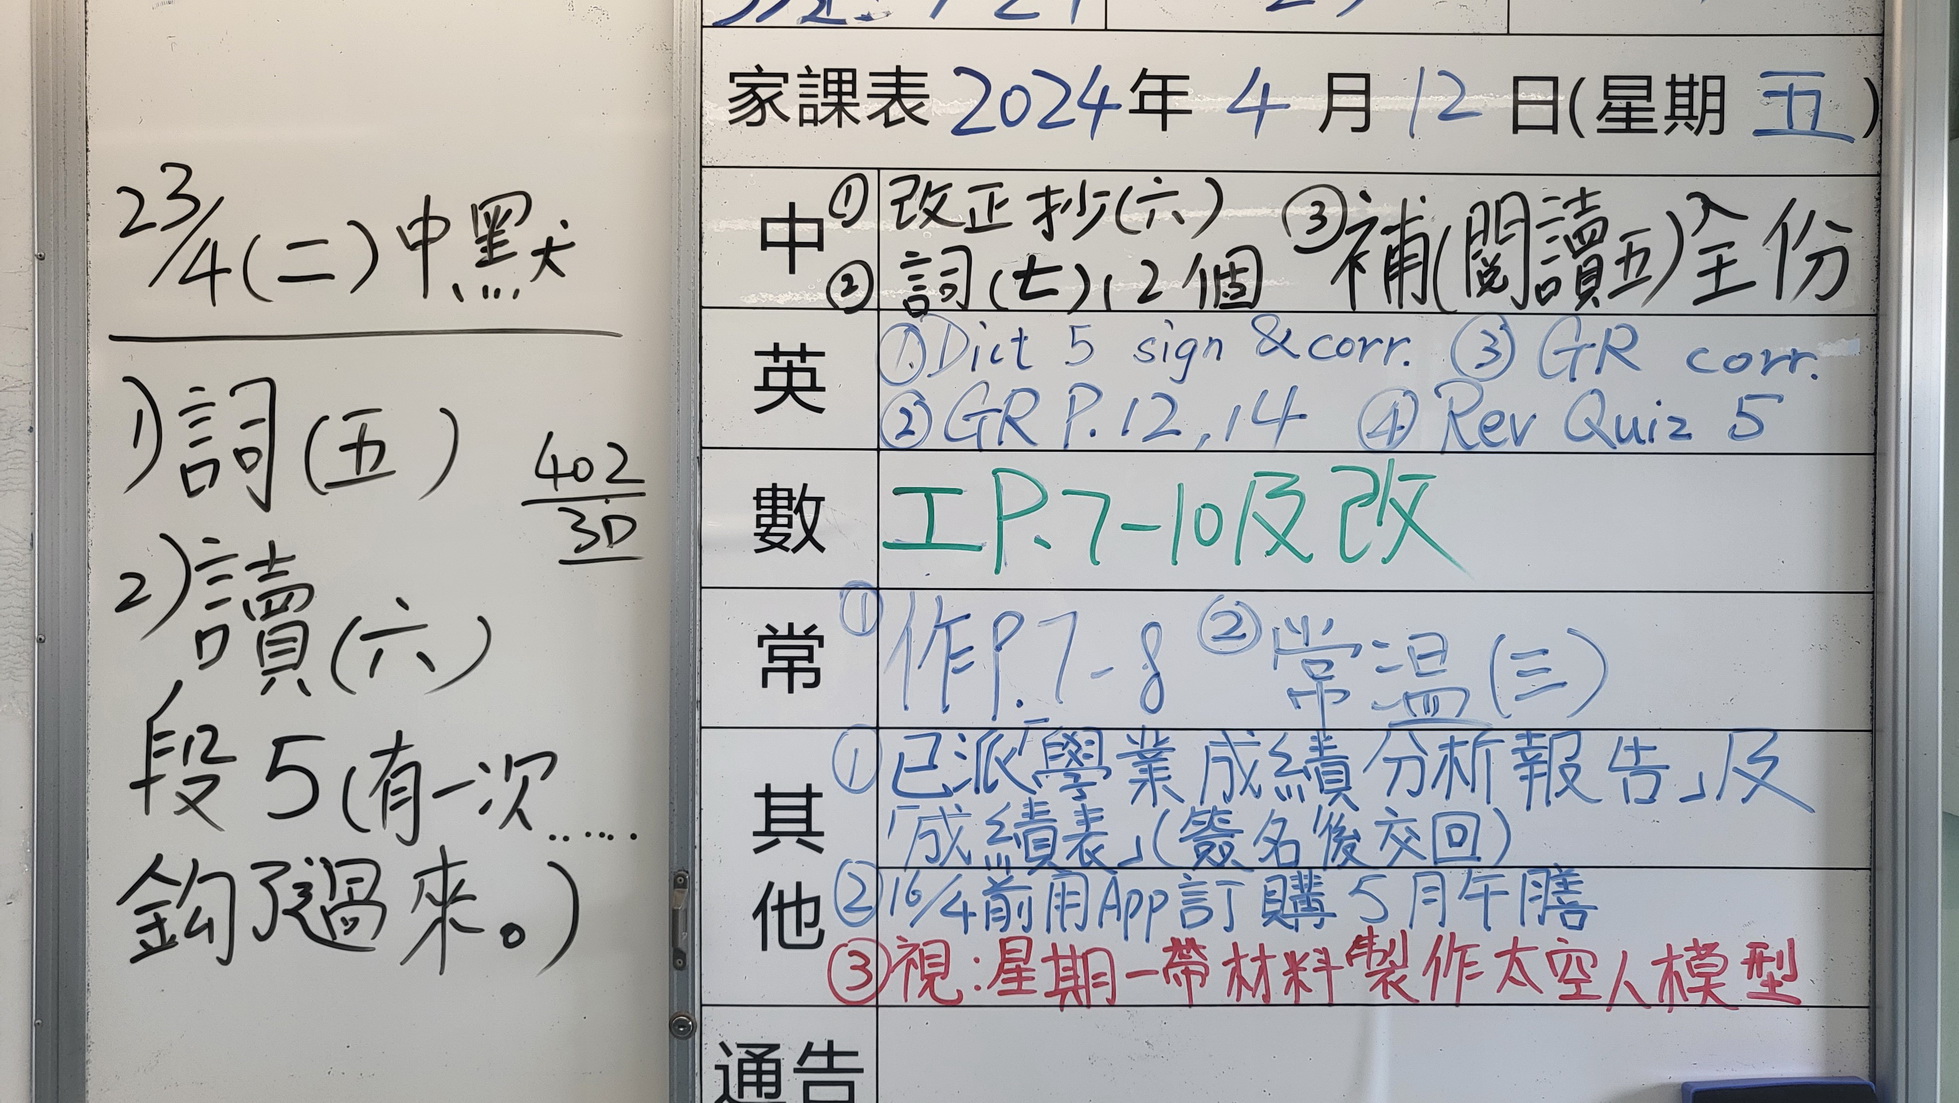 23/4(二)中默
1)詞(五)
402
30
2)讀(六)
段5(有一次……
鈎了過來。)
家課表 2024年 4月 12日(星期 五)
中
①改正抄(六) ③補(閱讀五)全份
②詞(七)12個
英
①Dict 5 sign & corr. ③GR corr.
②GR P.12,14 ④Rev Quiz 5
數
工P.7-10及改
常
①作P.7-8 ②常温(三)
其他
①已派「學業成績分析報告」及
「成績表」(簽名後交回)
②16/4前用App訂購5月午膳
③視:星期一帶材料製作太空人模型
通告